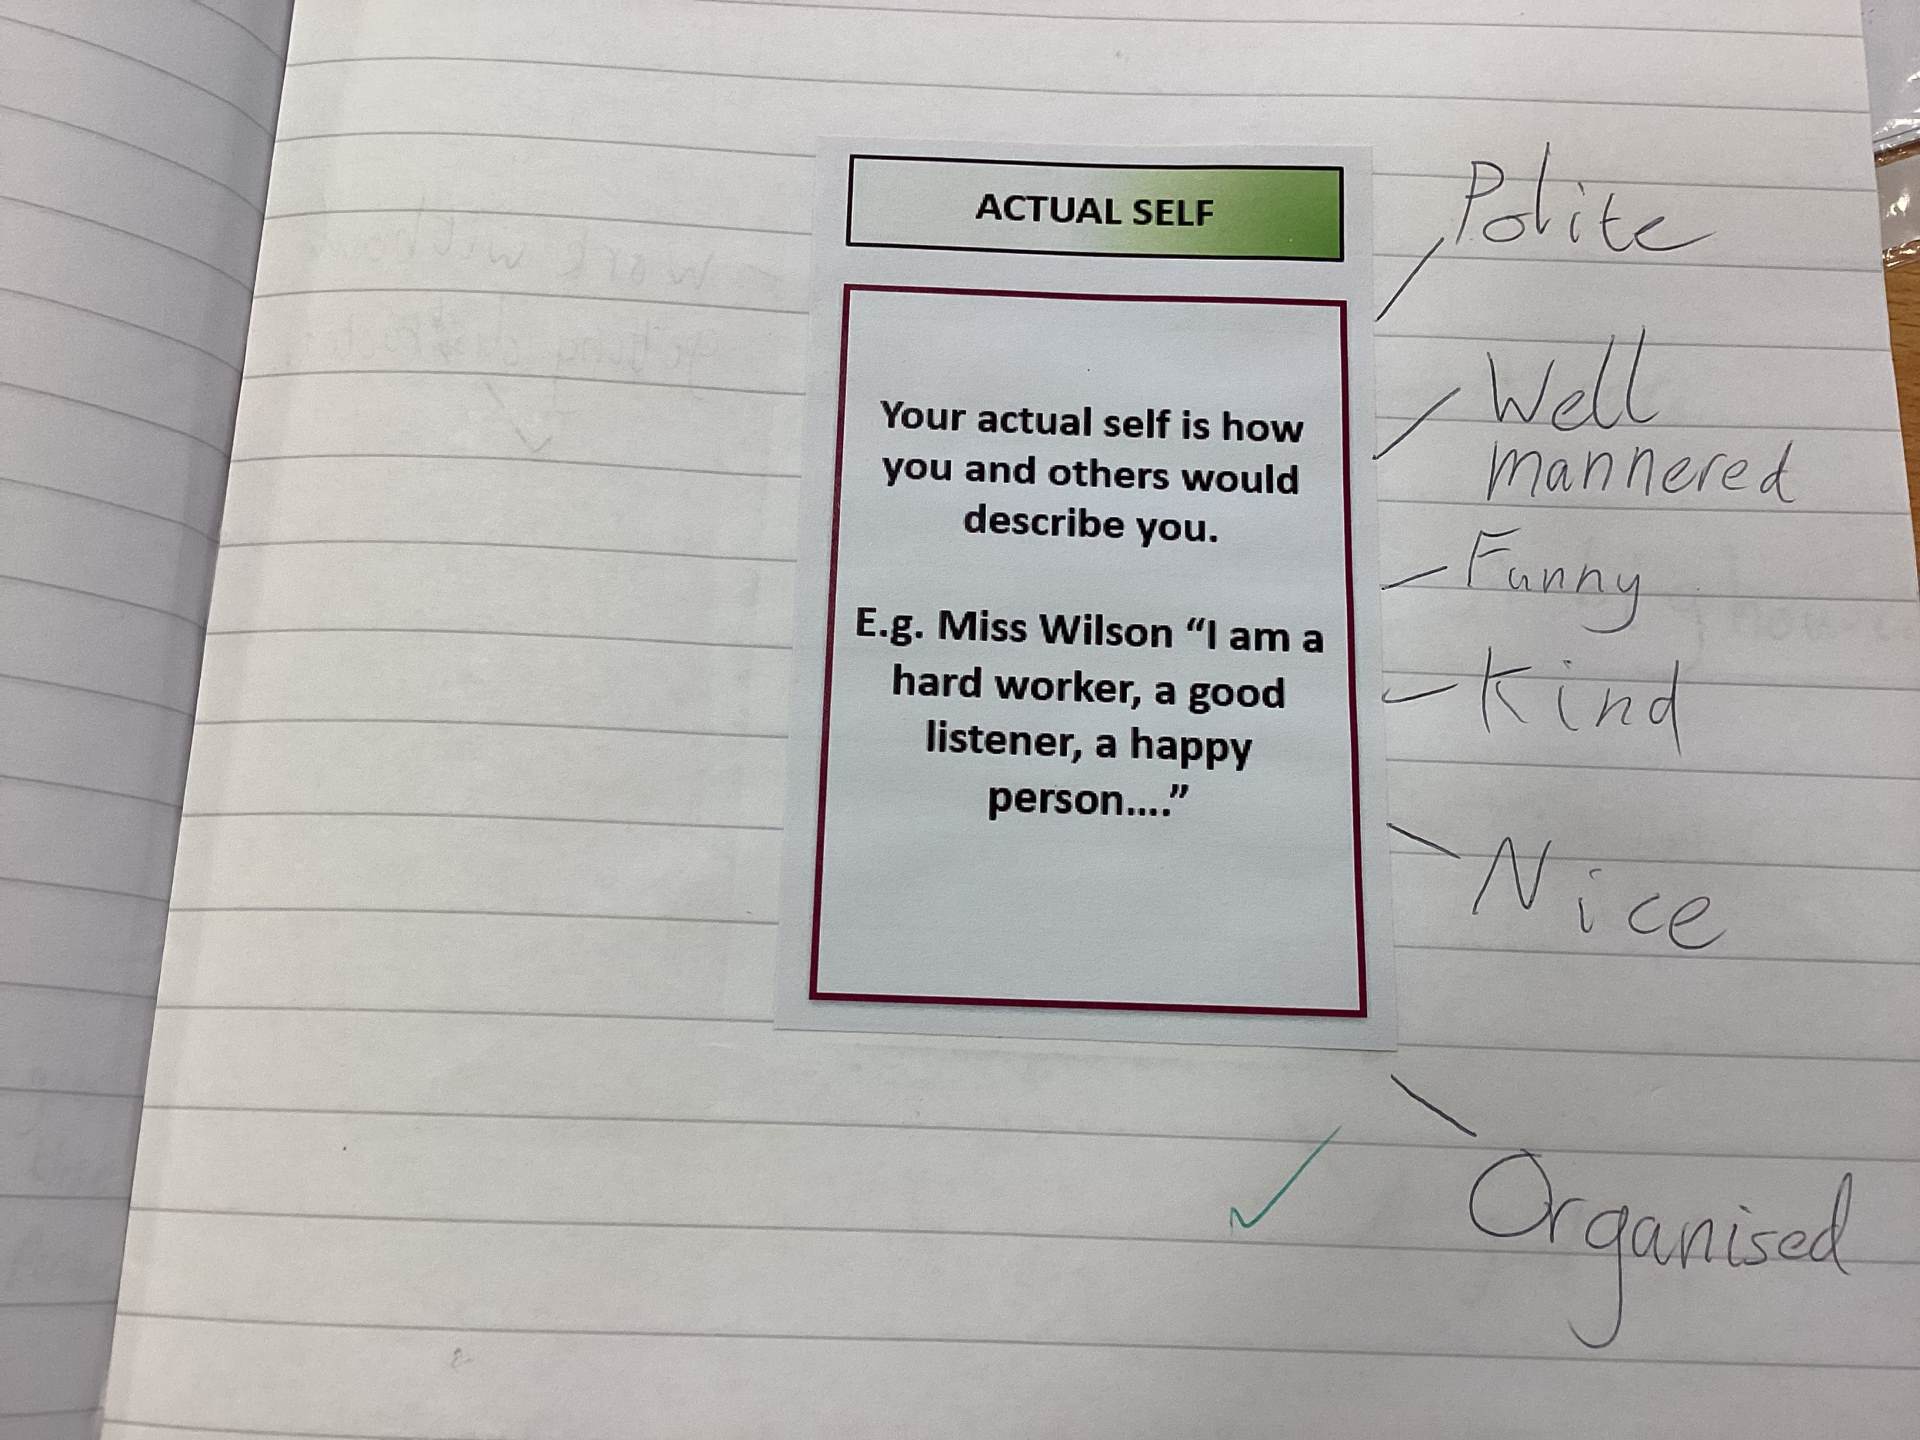 ACTUAL SELF
Your actual self is how
you and others would
describe you.
E.g. Miss Wilson “I am a
hard worker, a good
listener, a happy
person....”
Polite
Well
mannered
Funny
Kind
Nice
Organised